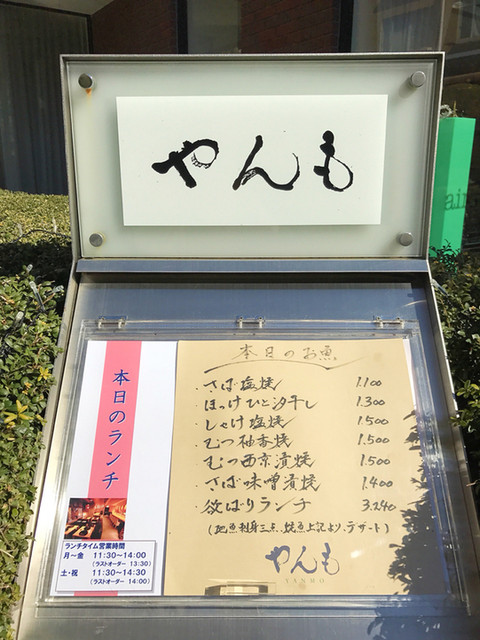 やんも
本日のお魚
・さば塩焼 1.100
・ほっけひと汐干し 1.300
・しゃけ塩焼 1.500
・むつ柚香焼 1.500
むつ西京漬焼 1.500
・さば味噌漬焼 1.400
・欲ばりランチ 3.240
(地魚刺身三点、焼魚上記より、デザート)
やんも
YANMO
本日のランチ
ランチタイム営業時間
月〜金 11:30〜14:00
(ラストオーダー 13:30)
土・祝 11:30〜14:30
(ラストオーダー 14:00)